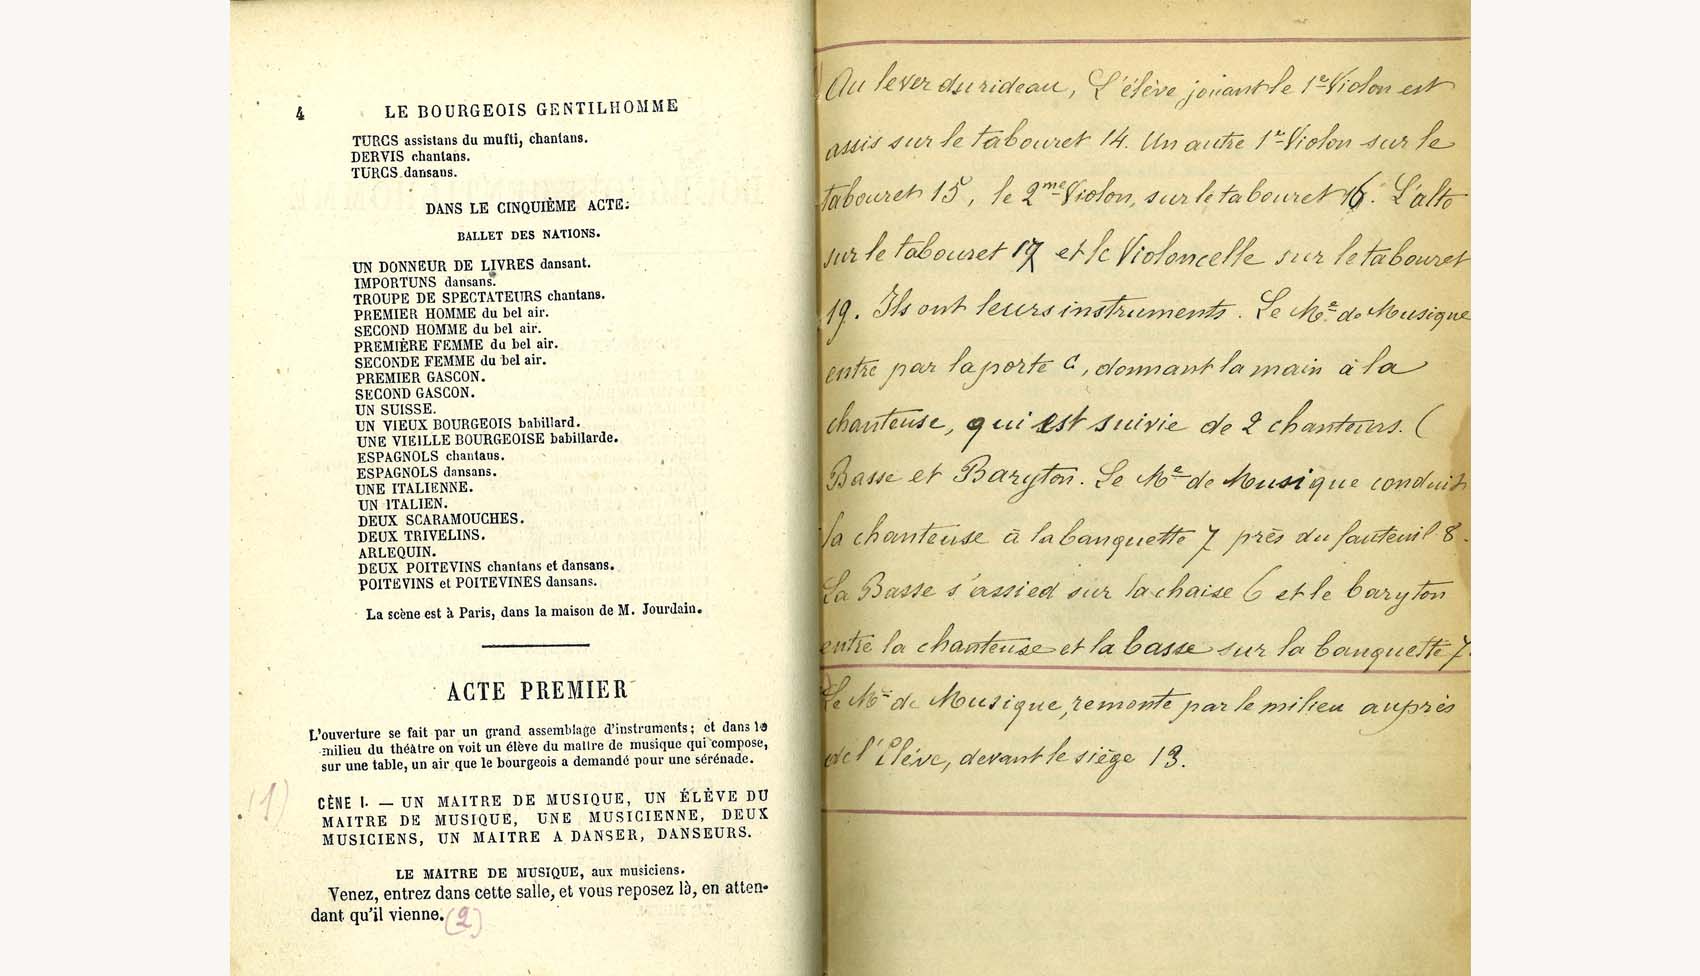 4
LE BOURGEOIS GENTILHOMME
TURCS assistans du mufti, chantans.
DERVIS chantans.
TURCS dansans.
DANS LE CINQUIÈME ACTE:
BALLET DES NATIONS.
UN DONNEUR DE LIVRES dansant.
IMPORTUNS dansans.
TROUPE DE SPECTATEURS chantans.
PREMIER HOMME du bel air.
SECOND HOMME du bel air.
PREMIÈRE FEMME du bel air.
SECONDE FEMME du bel air.
PREMIER GASCON.
SECOND GASCON.
UN SUISSE.
UN VIEUX BOURGEOIS babillard.
UNE VIEILLE BOURGEOISE babillarde.
ESPAGNOLS chantans.
ESPAGNOLS dansans.
UNE ITALIENNE.
UN ITALIEN.
DEUX SCARAMOUCHES.
DEUX TRIVELINS.
ARLEQUIN.
DEUX POITEVINS chantans et dansans.
POITEVINS et POITEVINES dansans.
La scène est à Paris, dans la maison de M. Jourdain.
ACTE PREMIER
L'ouverture se fait par un grand assemblage d'instruments; et dans le
milieu du théâtre on voit un élève du maître de musique qui compose,
sur une table, un air que le bourgeois a demandé pour une sérénade.
(1)
CÈNE I. — UN MAITRE DE MUSIQUE, UN ÉLÈVE DU
MAITRE DE MUSIQUE, UNE MUSICIENNE, DEUX
MUSICIENS, UN MAITRE A DANSER, DANSEURS.
LE MAITRE DE MUSIQUE, aux musiciens.
Venez, entrez dans cette salle, et vous reposez là, en atten-
dant qu'il vienne. (2)
Au lever du rideau, L'élève jouant le 1er Violon est
assis sur le tabouret 14. Un autre 1er Violon sur le
tabouret 15, le 2me Violon, sur le tabouret 16. L'alto
sur le tabouret 17 et le Violoncelle sur le tabouret
19. Ils ont leurs instruments. Le Me de Musique
entre par la porte C, donnant la main à la
chanteuse, qui est suivie de 2 chanteurs. (
Basse et Baryton. Le Me de Musique conduit
la chanteuse à la banquette 7 près du fauteuil 8.
La Basse s'assied sur la chaise 6 et le baryton
entre la chanteuse et la basse sur la banquette 7.
Le Me de Musique, remonte par le milieu auprès
de l'Elève, devant le siège 13.